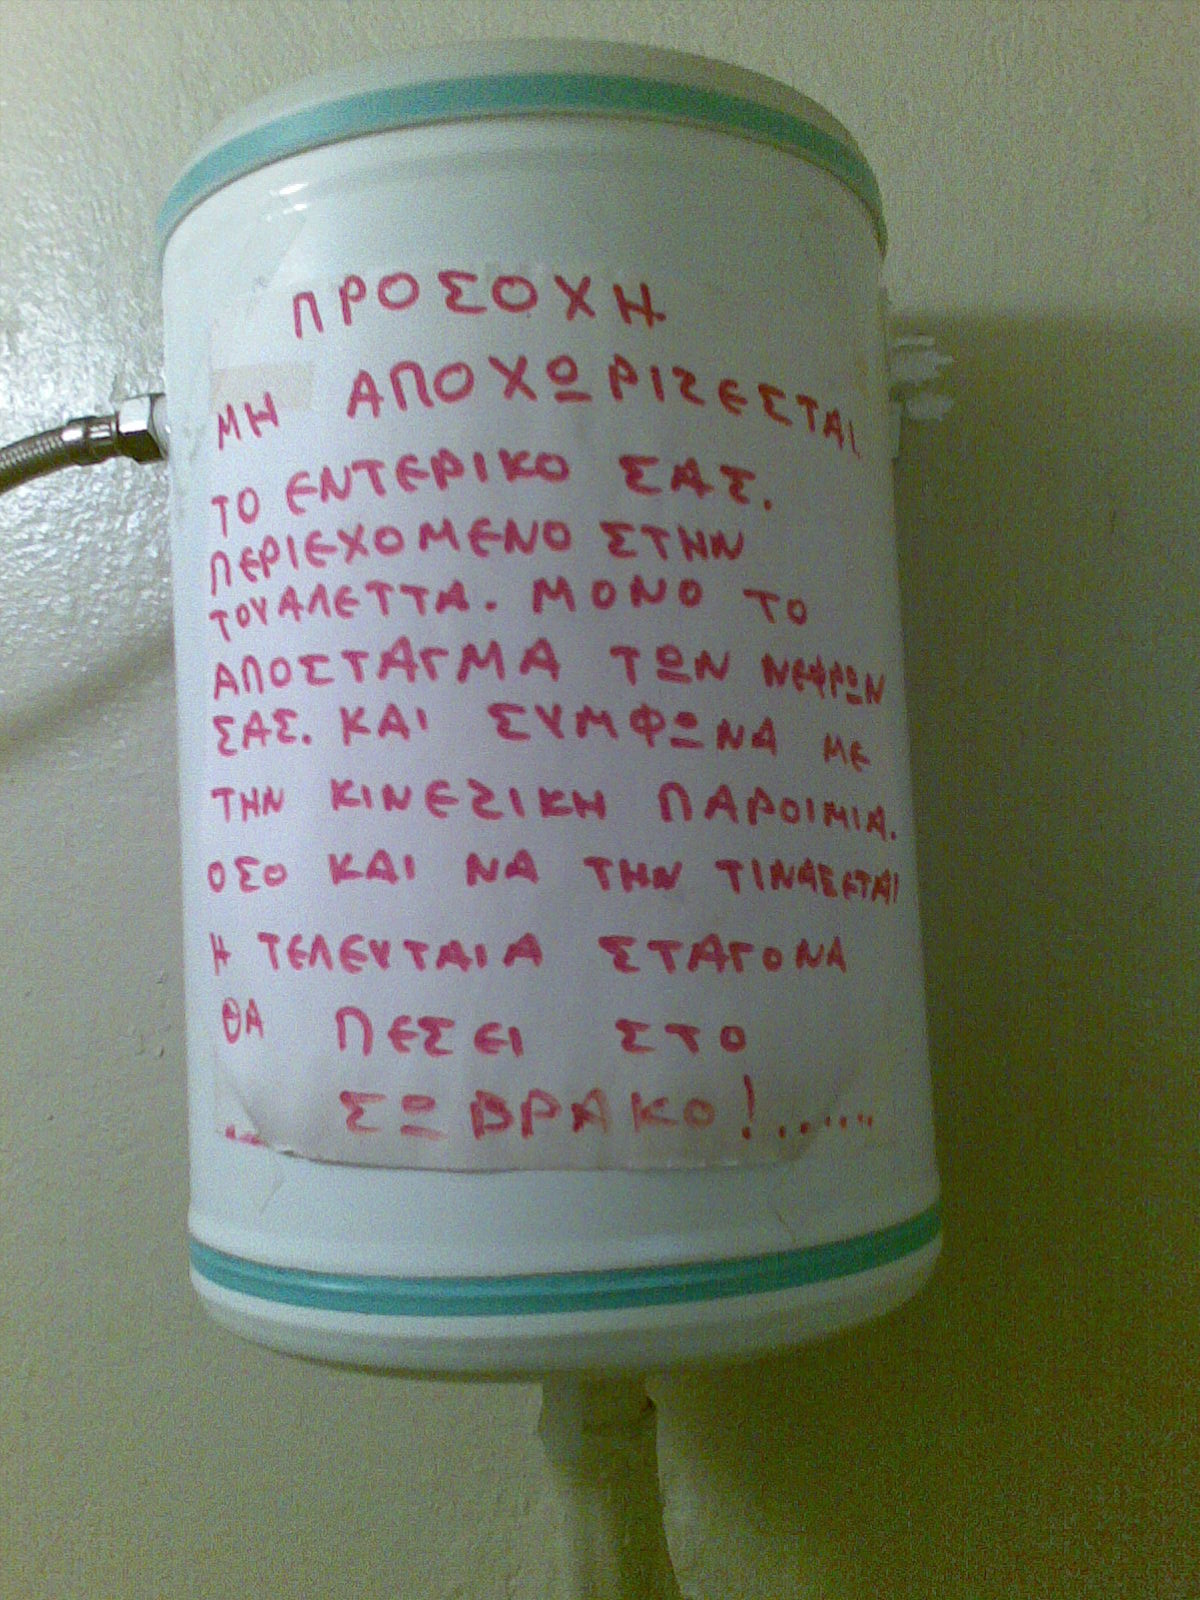 ΠΡΟΣΟΧΗ
ΜΗ ΑΠΟΧΩΡΙΖΕΣΤΑΙ
ΤΟ ΕΝΤΕΡΙΚΟ ΣΑΣ.
ΠΕΡΙΕΧΟΜΕΝΟ ΣΤΗΝ
ΤΟΥΑΛΕΤΤΑ. ΜΟΝΟ ΤΟ
ΑΠΟΣΤΑΓΜΑ ΤΩΝ ΝΕΦΡΩΝ
ΣΑΣ. ΚΑΙ ΣΥΜΦΩΝΑ ΜΕ
ΤΗΝ ΚΙΝΕΖΙΚΗ ΠΑΡΟΙΜΙΑ.
ΟΣΟ ΚΑΙ ΝΑ ΤΗΝ ΤΙΝΑΞΕΤΑΙ
Η ΤΕΛΕΥΤΑΙΑ ΣΤΑΓΟΝΑ
ΘΑ ΠΕΣΕΙ ΣΤΟ
... ΣΩΒΡΑΚΟ!......